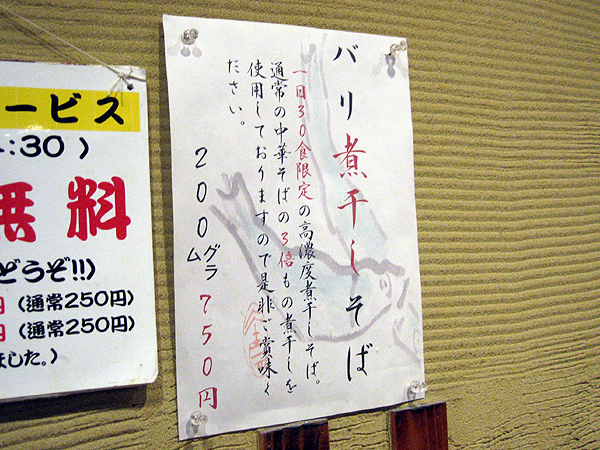 ービス
:30 )
無料
どうぞ!!)
円 (通常250円)
円 (通常250円)
ました。)
バリ煮干しそば
一日30食限定の高濃度煮干しそば。
通常の中華そばの3倍もの煮干しを
使用しておりますので是非ご賞味く
ださい。
200グラム 750円